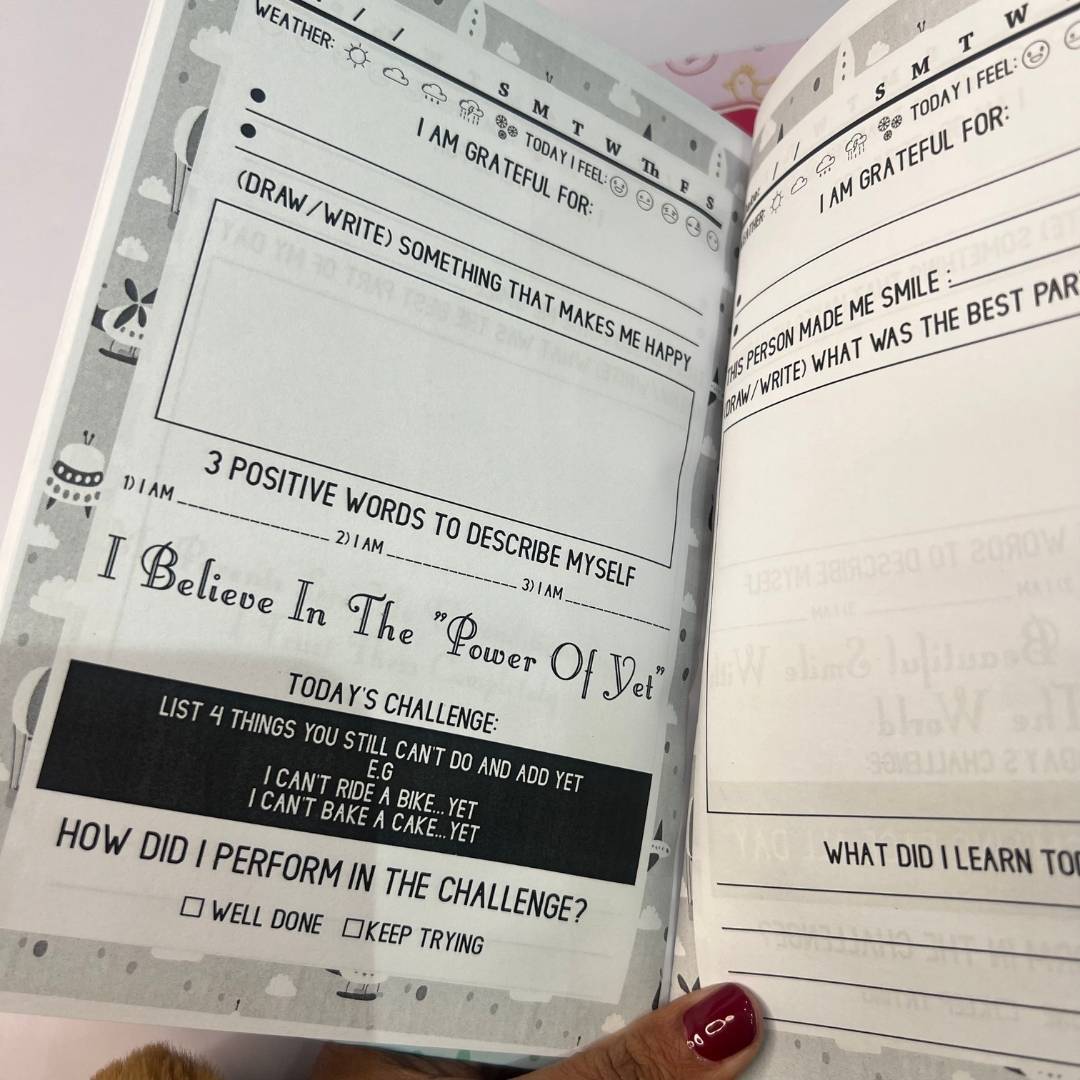 / /
WEATHER:
S M T W Th F S
TODAY I FEEL:
I AM GRATEFUL FOR:
(DRAW/WRITE) SOMETHING THAT MAKES ME HAPPY
3 POSITIVE WORDS TO DESCRIBE MYSELF
1) I AM 2) I AM 3) I AM
I Believe In The "Power Of Yet"
TODAY'S CHALLENGE:
LIST 4 THINGS YOU STILL CAN'T DO AND ADD YET
E.G
I CAN'T RIDE A BIKE...YET
I CAN'T BAKE A CAKE...YET
HOW DID I PERFORM IN THE CHALLENGE?
☐ WELL DONE ☐ KEEP TRYING
/ /
S M T W
TODAY I FEEL:
I AM GRATEFUL FOR:
THIS PERSON MADE ME SMILE :
(DRAW/WRITE) WHAT WAS THE BEST PAR
WHAT DID I LEARN TO